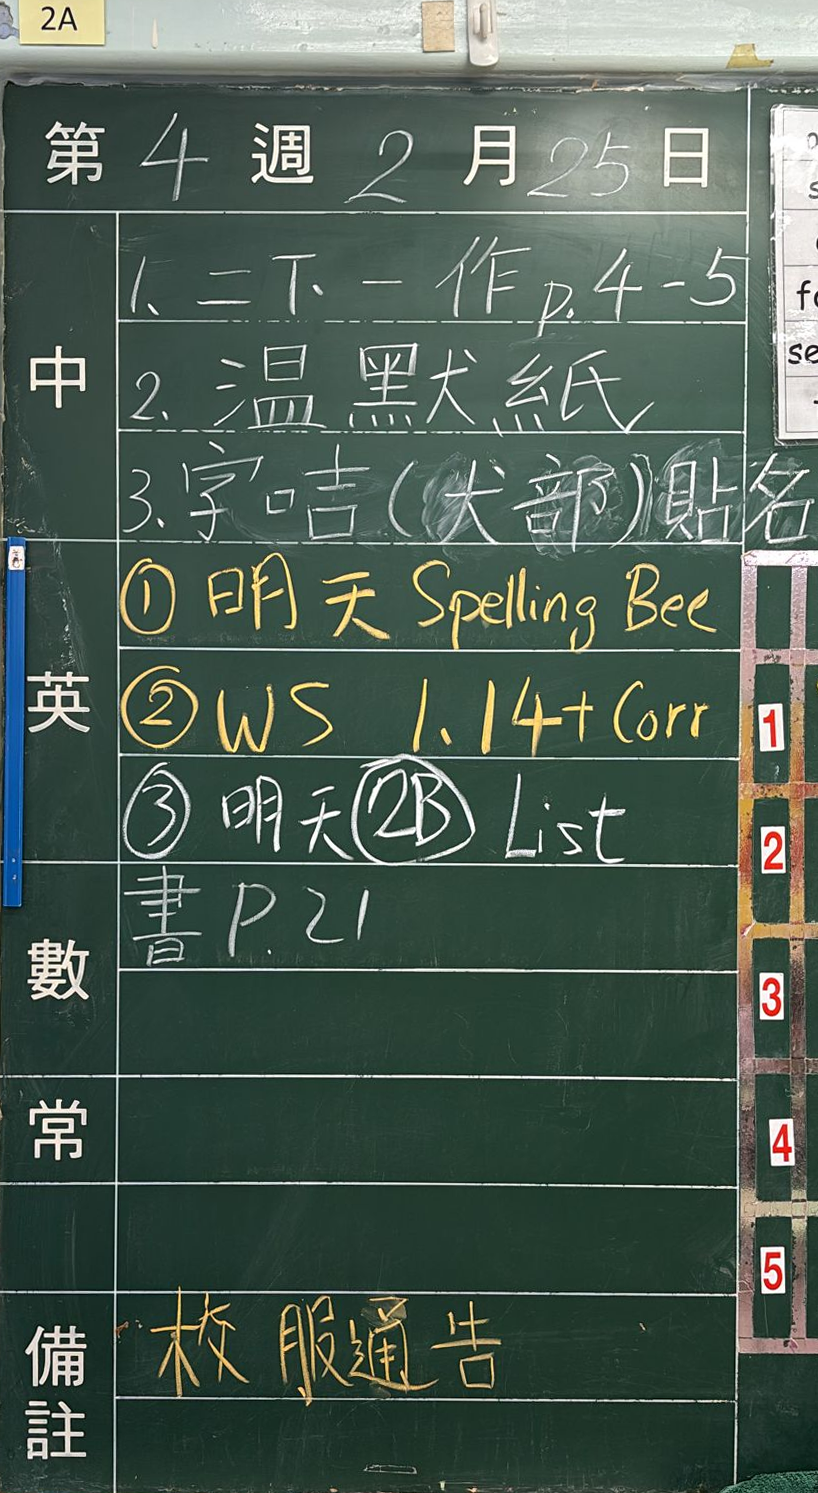 2A
第 4 週 2 月 25 日
中
1. 二下一作 p.4-5
2. 温默紙
3. 字咭(犬部)貼名
英
① 明天 Spelling Bee
② WS 1.14+Corr
③ 明天 2B List
數
書 P.21
常
備註
校服通告
1
2
3
4
5